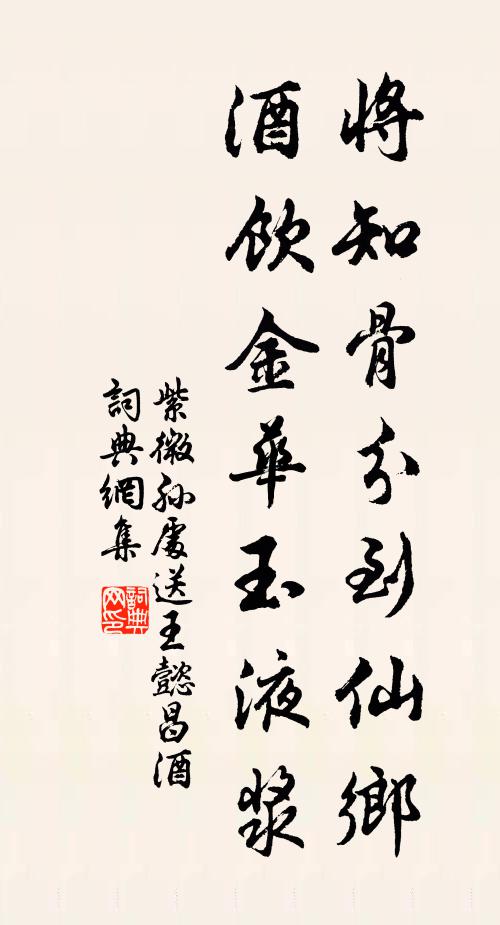 將知骨分到仙鄉
酒飲金華玉液漿
紫微孫處送王懿昌酒
詞典網集
詞典網印